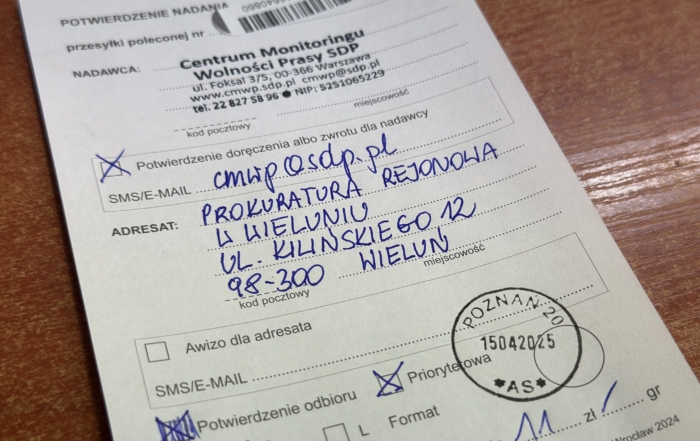 POTWIERDZENIE NADANIA
przesyłki poleconej nr
NADAWCA:
Centrum Monitoringu
Wolności Prasy SDP
ul. Foksal 3/5, 00-366 Warszawa
www.cmwp.sdp.pl cmwp@sdp.pl
tel. 22 827 58 96 ● NIP: 5251065229
kod pocztowy miejscowość
Potwierdzenie doręczenia albo zwrotu dla nadawcy
SMS/E-MAIL cmwp@sdp.pl
ADRESAT: PROKURATURA REJONOWA
W WIELUNIU
UL. KILIŃSKIEGO 12
98-300 WIELUŃ
kod pocztowy miejscowość
Awizo dla adresata
SMS/E-MAIL
POZNAŃ 20
15042025
*AS*
Potwierdzenie odbioru
Priorytetowa
L Format
11 zł / gr
2024